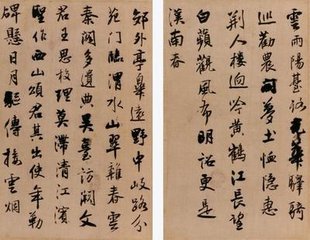 雲雨陽臺路光華驛騎
巡勸農開夢土恤隱惠
荆人樓迥吟黄鶴江長望
白蘋觀風布明詔更是
漢南春
郊外亭皋遠野中岐路分
苑門臨渭水山翠雜春雲
秦閣多遺典吳臺訪闕文
君王思校理莫滯清江
聖作西山頌君其出使年勒
碑懸日月驅傳接雲烟